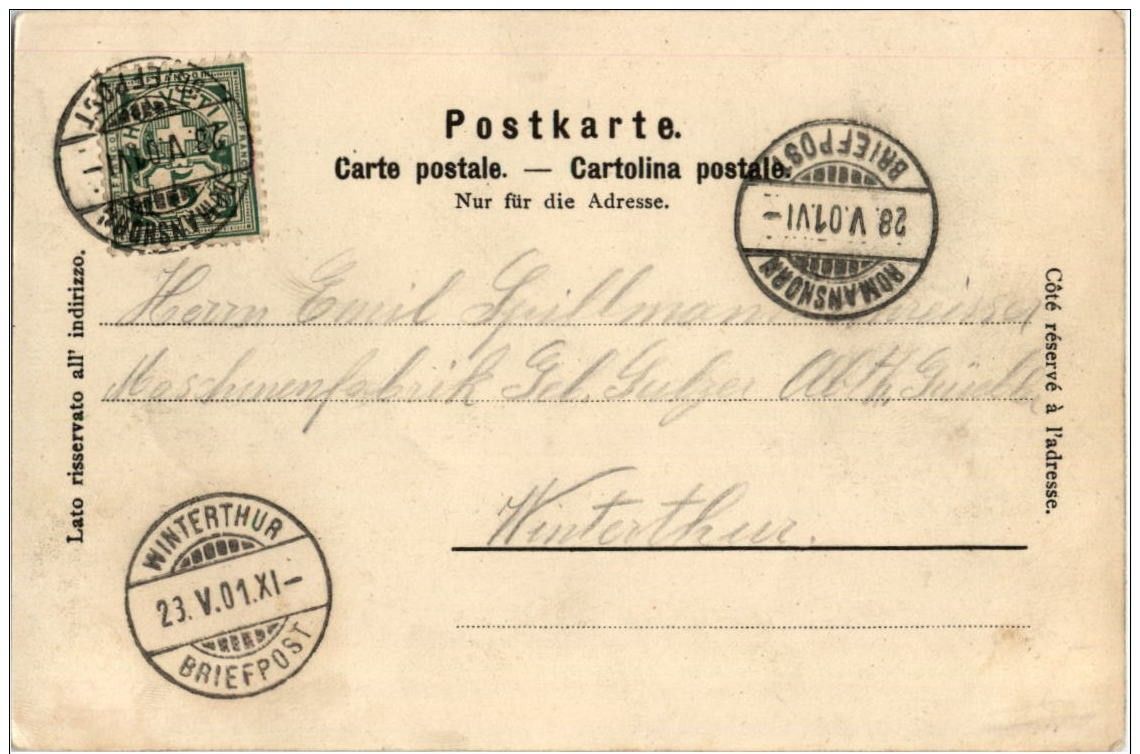 Postkarte.
Carte postale. — Cartolina postale.
Nur für die Adresse.
ROMANSHORN
28.V.01.VI–
BRIEFPOST
ROMANSHORN
28.V.01.VI–
BRIEFPOST
Lato risservato all' indirizzo.
Côté réservé à l'adresse.
Herrn Emil Spillmann
Maschinenfabrik Geb. Sulzer
Winterthur.
WINTERTHUR
23.V.01.XI–
BRIEFPOST